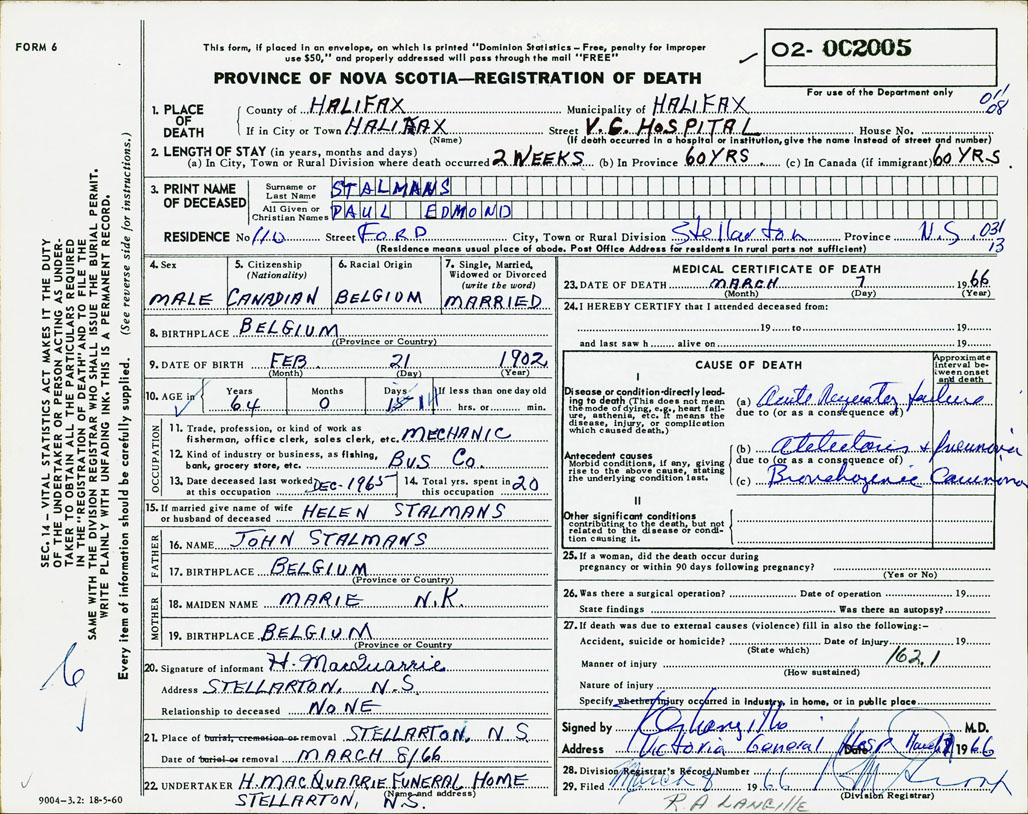 FORM 6
This form, if placed in an envelope, on which is printed "Dominion Statistics – Free, penalty for improper
use $50," and properly addressed will pass through the mail "FREE"
02- 002005
For use of the Department only
PROVINCE OF NOVA SCOTIA—REGISTRATION OF DEATH
01/08
1. PLACE OF DEATH
County of HALIFAX Municipality of HALIFAX
If in City or Town HALIFAX Street V.G. HOSPITAL House No.
(Name) (If death occurred in a hospital or institution, give the name instead of street and number)
2. LENGTH OF STAY (in years, months and days)
(a) In City, Town or Rural Division where death occurred 2 WEEKS (b) In Province 60 YRS. (c) In Canada (if immigrant) 60 YRS.
3. PRINT NAME OF DECEASED
Surname or Last Name STALMANS
All Given or Christian Names PAUL EDMOND
RESIDENCE No 110 Street FORD City, Town or Rural Division Stellarton Province N.S. 031/13
(Residence means usual place of abode. Post Office Address for residents in rural parts not sufficient)
4. Sex MALE
5. Citizenship (Nationality) CANADIAN
6. Racial Origin BELGIUM
7. Single, Married, Widowed or Divorced (write the word) MARRIED
8. BIRTHPLACE BELGIUM
(Province or Country)
9. DATE OF BIRTH FEB 21 1902
(Month) (Day) (Year)
10. AGE in Years 64 Months 0 Days 15 14 If less than one day old hrs. or min.
OCCUPATION
11. Trade, profession, or kind of work as fisherman, office clerk, sales clerk, etc. MECHANIC
12. Kind of industry or business, as fishing, bank, grocery store, etc. BUS CO.
13. Date deceased last worked at this occupation DEC-1965
14. Total yrs. spent in this occupation 20
15. If married give name of wife or husband of deceased HELEN STALMANS
FATHER
16. NAME JOHN STALMANS
17. BIRTHPLACE BELGIUM
(Province or Country)
MOTHER
18. MAIDEN NAME MARIE N.K.
19. BIRTHPLACE BELGIUM
(Province or Country
20. Signature of informant H. MacQuarrie
Address STELLARTON, N.S.
Relationship to deceased NONE
21. Place of burial, cremation or removal STELLARTON, N S
Date of burial or removal MARCH 8/66
22. UNDERTAKER H. MACQUARRIE FUNERAL HOME
(Name and address)
STELLARTON, N.S.
MEDICAL CERTIFICATE OF DEATH
23. DATE OF DEATH MARCH 7 1966
(Month) (Day) (Year)
24. I HEREBY CERTIFY that I attended deceased from:
19 to 19
and last saw h alive on 19
CAUSE OF DEATH
Approximate interval between onset and death
I
Disease or condition directly leading to death (This does not mean the mode of dying, e.g., heart failure, asthenia, etc. It means the disease, injury, or complication which caused death.)
(a) Acute Respirator failure
due to (or as a consequence of)
Antecedent causes
Morbid conditions, if any, giving rise to the above cause, stating the underlying condition last.
(b) Atelectasis + Pneumonia
due to (or as a consequence of)
(c) Bronchogenic Carcinoma
II
Other significant conditions
contributing to the death, but not related to the disease or condition causing it.
25. If a woman, did the death occur during
pregnancy or within 90 days following pregnancy?
(Yes or No)
26. Was there a surgical operation? Date of operation 19
State findings Was there an autopsy?
27. If death was due to external causes (violence) fill in also the following:–
Accident, suicide or homicide? Date of injury 19
(State which)
Manner of injury 162.1
(How sustained)
Nature of injury
Specify whether injury occurred in Industry, in home, or in public place
Signed by M.D.
Address Victoria General Hosp Date March 1966
28. Division Registrar's Record Number
29. Filed March 8 1966
(Division Registrar)
R.A LANGILLE
SEC. 14 – VITAL STATISTICS ACT MAKES IT THE DUTY
OF THE UNDERTAKER OR PERSON ACTING AS UNDER-
TAKER TO OBTAIN ALL THE PARTICULARS REQUIRED
IN THE "REGISTRATION OF DEATH" AND TO FILE THE
SAME WITH THE DIVISION REGISTRAR WHO SHALL ISSUE THE BURIAL PERMIT.
WRITE PLAINLY WITH UNFADING INK. THIS IS A PERMANENT RECORD.
Every item of information should be carefully supplied. (See reverse side for instructions.)
6
9004–3.2: 18-5-60